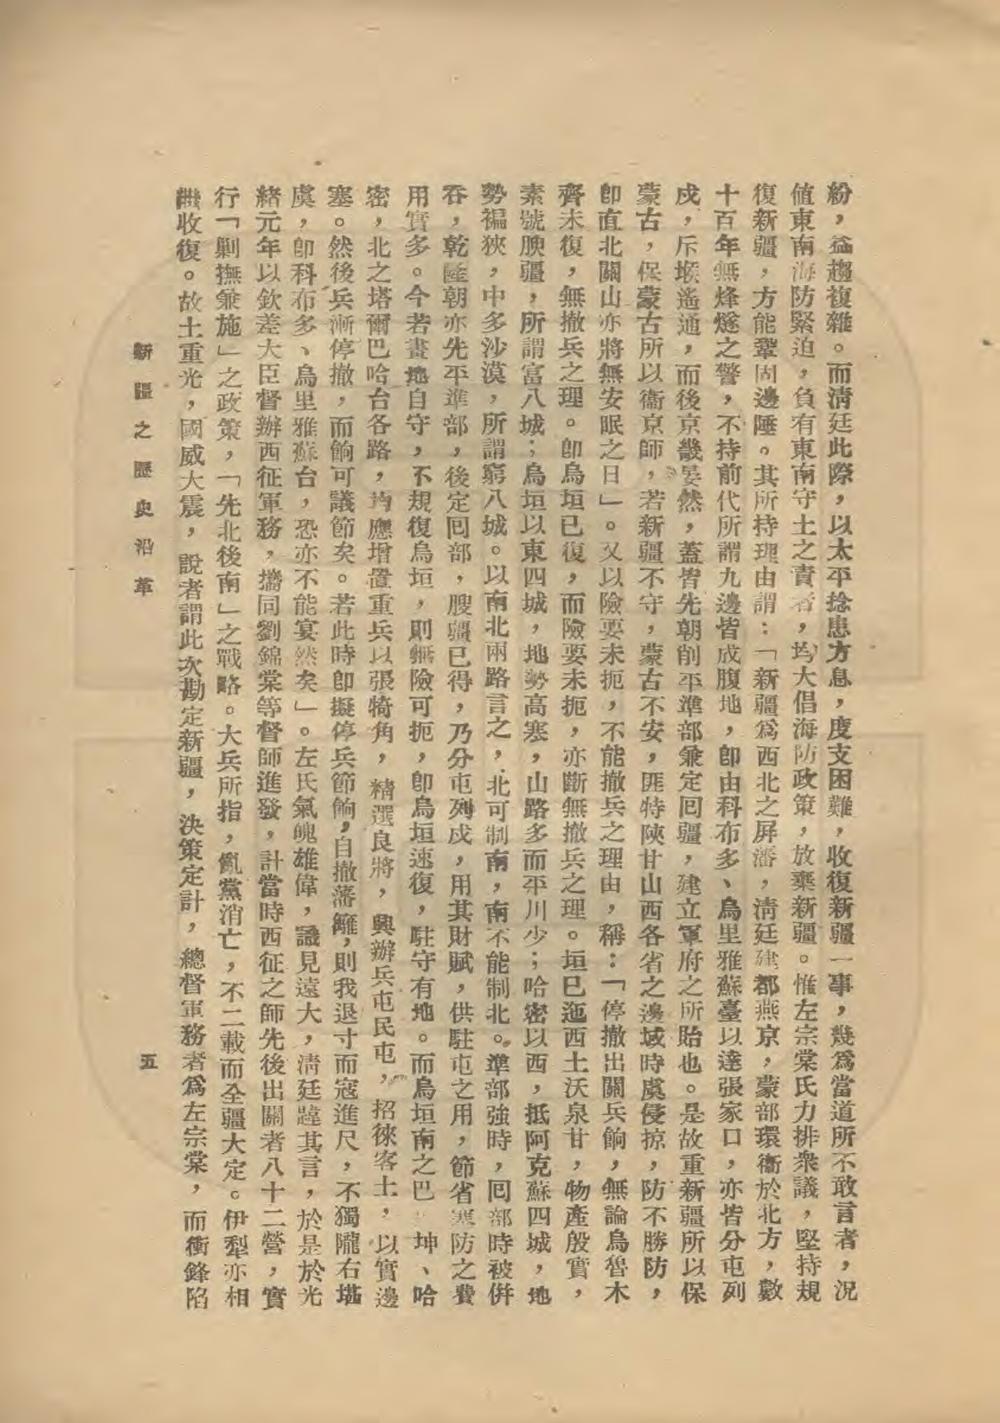 紛，益趨複雜。而淸廷此際，以太平捻患方息，度支困難，收復新疆一事，幾爲當道所不敢言者，況
値東南海防緊迫，負有東南守土之責者，均大倡海防政策，放棄新疆。惟左宗棠氏力排衆議，堅持規
復新疆，方能鞏固邊陲。其所持理由謂：「新疆爲西北之屏藩，淸廷建都燕京，蒙部環衞於北方，數
十百年無烽燧之警，不持前代所謂九邊皆成腹地，卽由科布多、烏里雅蘇臺以達張家口，亦皆分屯列
戍，斥堠遙通，而後京畿晏然，蓋皆先朝削平準部兼定囘疆，建立軍府之所貽也。是故重新疆所以保
蒙古，保蒙古所以衞京師，若新疆不守，蒙古不安，匪特陝甘山西各省之邊域時虞侵掠，防不勝防，
卽直北關山亦將無安眠之日」。又以險要未扼，不能撤兵之理由，稱：「停撤出關兵餉，無論烏魯木
齊未復，無撤兵之理。卽烏垣已復，而險要未扼，亦斷無撤兵之理。垣已迤西土沃泉甘，物產殷實，
素號腴疆，所謂富八城；烏垣以東四城，地勢高塞，山路多而平川少；哈密以西，抵阿克蘇四城，地
勢褊狹，中多沙漠，所謂窮八城。以南北兩路言之，北可制南，南不能制北。準部強時，囘部時被併
吞，乾隆朝亦先平準部，後定囘部，腴疆已得，乃分屯列戍，用其財賦，供駐屯之用，節省塞防之費
用實多。今若畫地自守，不規復烏垣，則無險可扼，卽烏垣速復，駐守有地。而烏垣南之巴 坤、哈
密，北之塔爾巴哈台各路，均應增置重兵以張犄角，精選良將，興辦兵屯民屯，招徠客土，以實邊
塞。然後兵漸停撤，而餉可議節矣。若此時卽擬停兵節餉，自撤藩籬，則我退寸而寇進尺，不獨隴右堪
虞，卽科布多、烏里雅蘇台，恐亦不能宴然矣」。左氏氣魄雄偉，議見遠大，淸廷韙其言，於是於光
緒元年以欽差大臣督辦西征軍務，攜同劉錦棠等督師進發，計當時西征之師先後出關者八十二營，實
行「剿撫兼施」之政策，「先北後南」之戰略。大兵所指，亂黨消亡，不二載而全疆大定。伊犁亦相
繼收復。故土重光，國威大震，說者謂此次勘定新疆，決策定計，總督軍務者爲左宗棠，而衝鋒陷
新疆之歷史沿革
五